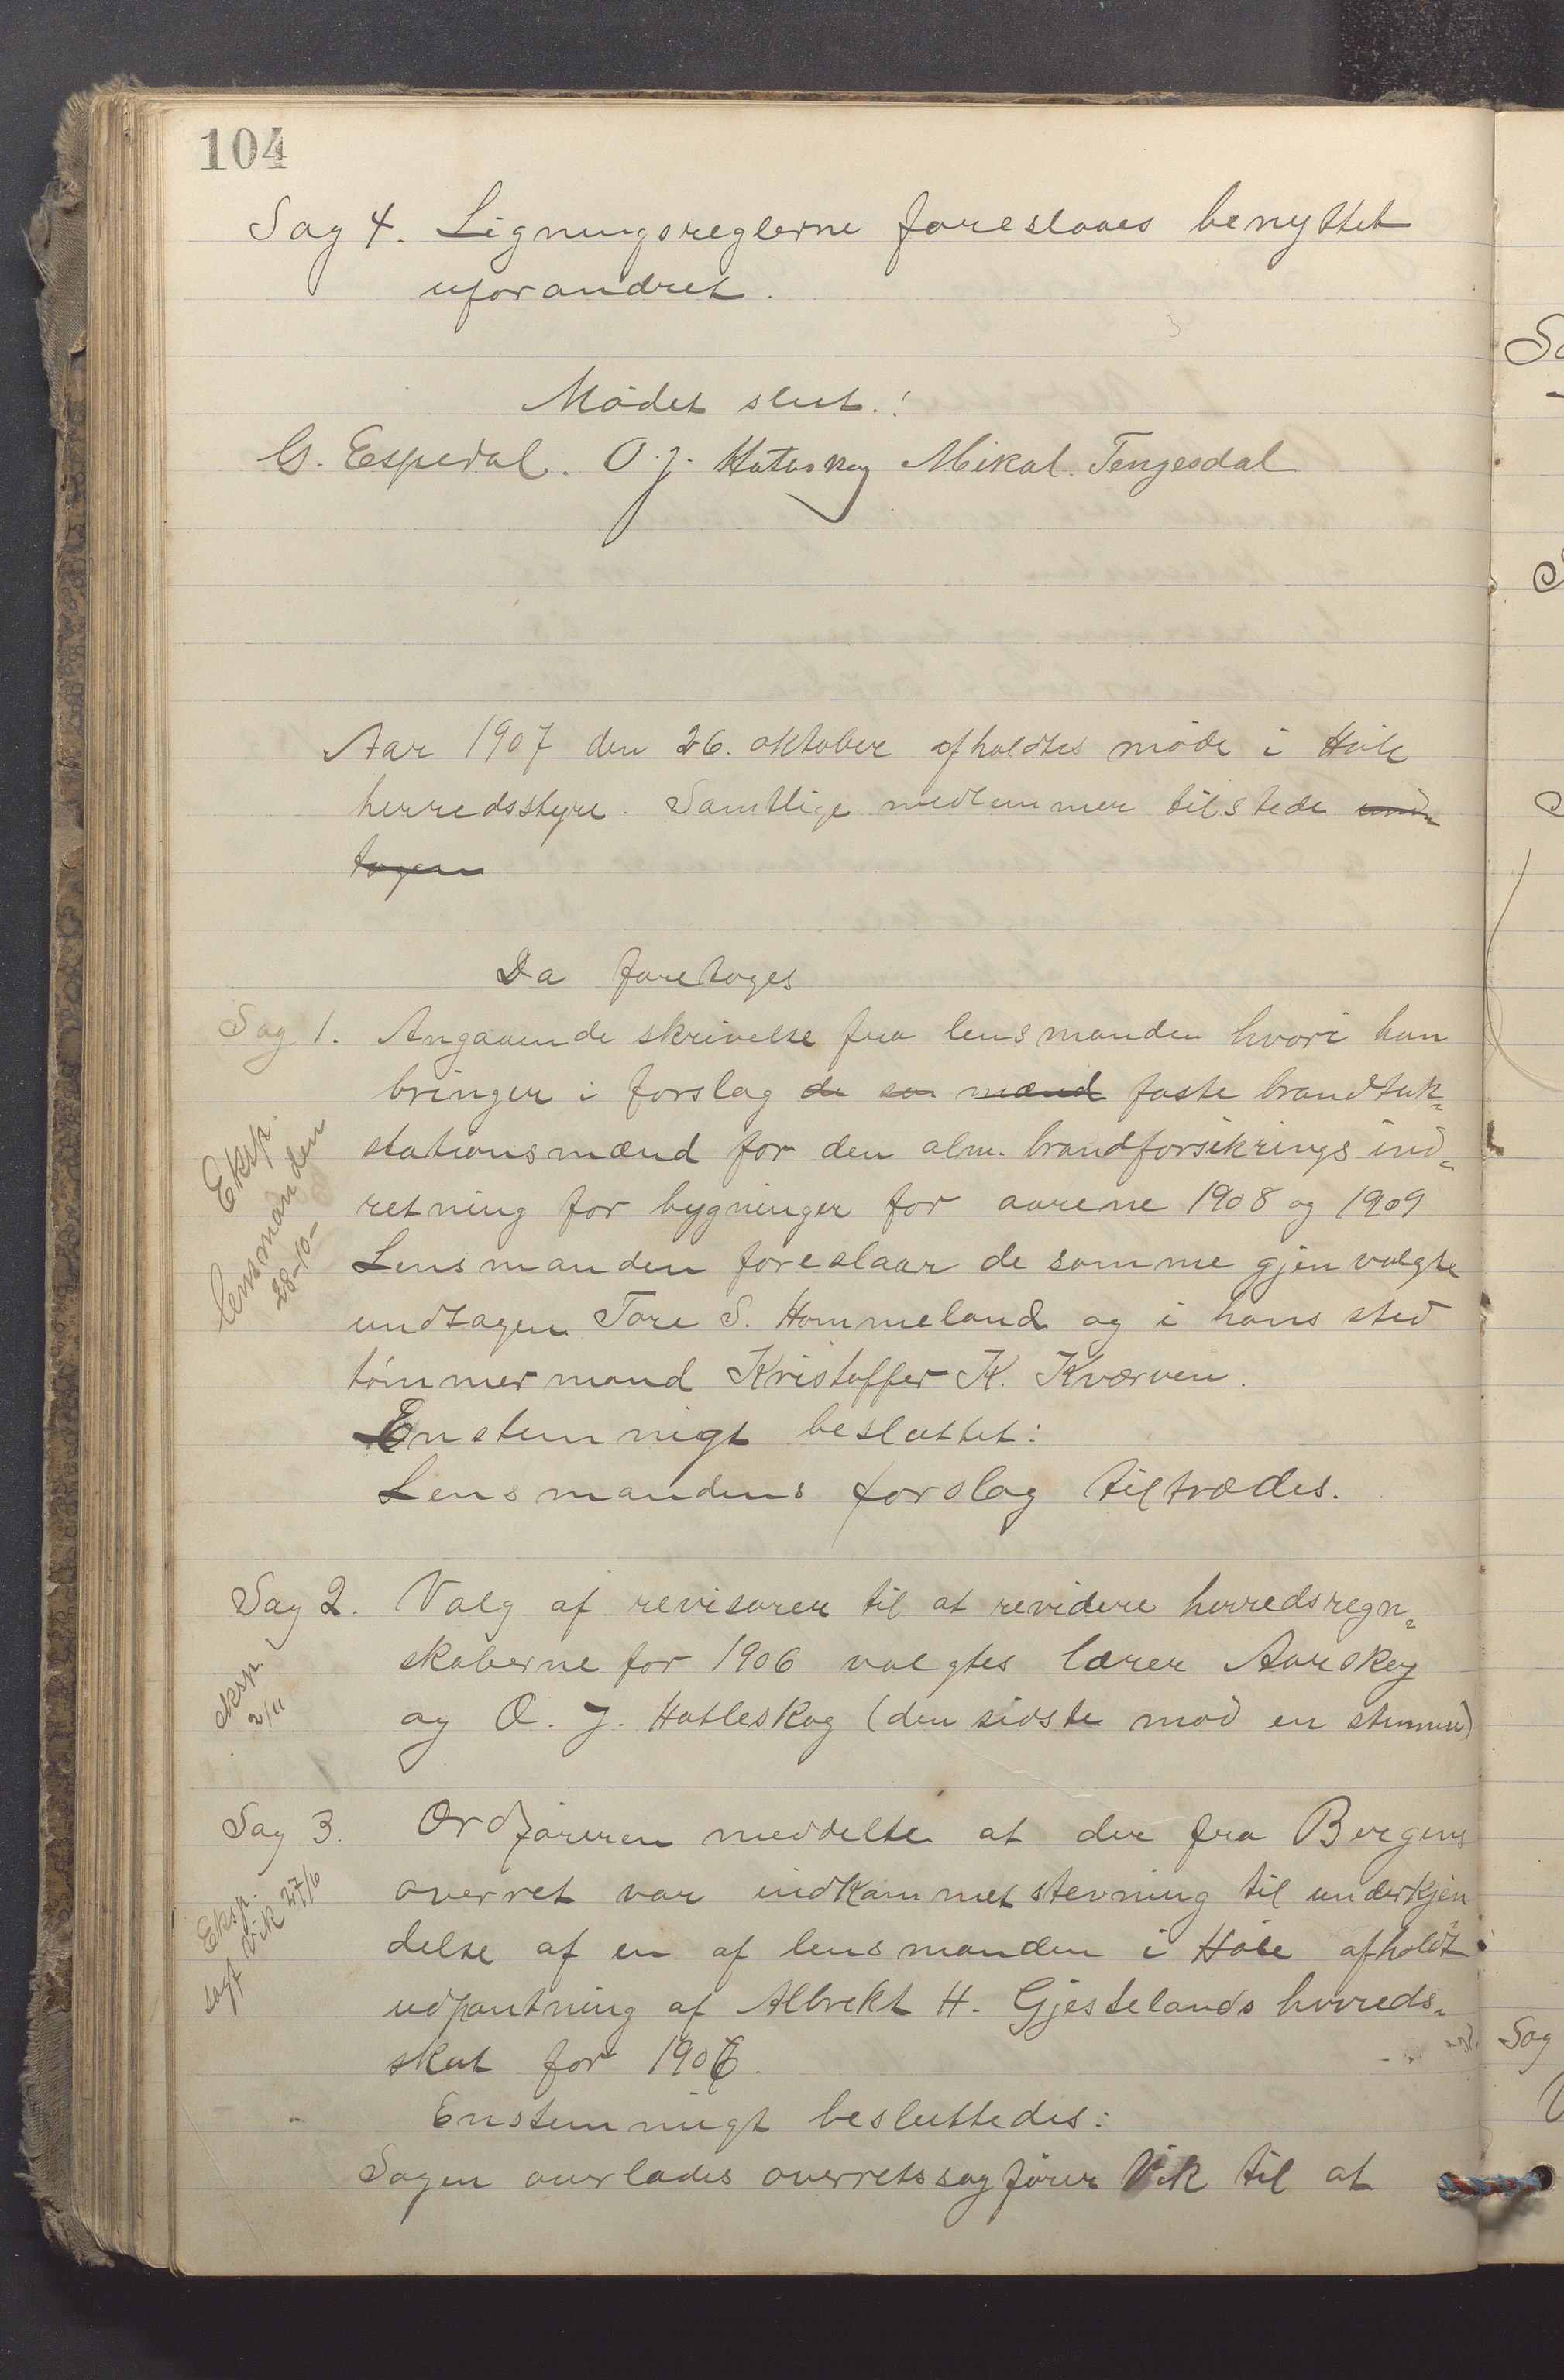 104
Sag 4. Ligningsreglerne foreslaaes benyttet
uforandret.
Mødet slut.!
G. Espedal. O. J. Hatleskog Mikal Tengesdal
Aar 1907 den 26. oktober afholdtes møde i Høle
herredsstyre. Samtlige medlemmer tilstede und-
tagen
Da foretoges
Sag 1. Angaaende skrivelse fra lensmanden hvori han
bringer i forslag de som mænd faste brandtak-
Eksp.
lensmanden
28-10-
stationsmænd for den alm. brandforsikrings ind-
retning for bygninger for aarene 1908 og 1909
Lensmanden foreslaar de samme gjenvalgte
undtagen Tore S. Hommeland og i hans sted
tømmermand Kristoffer K. Kværven.
Enstemmigt besluttet:
Lensmandens forslag tiltrædes.
Sag 2. Valg af revisorer til at revidere herredsregn-
eksp.
2/11
skaberne for 1906 valgtes lærer Aarskog
og O. J. Hatleskog (den sidste mod en stemme)
Sag 3. Ordføreren meddelte at der fra Bergens
Eksp.
sagf Vik 27/10
overret var indkommet stevning til underkjen
delse af en af lensmanden i Høle afholdt
udpantning af Albrekt H. Gjestelands herreds-
skat for 1906.
Enstemmigt besluttedes:
Sagen overlades overretssagfører Vik til at
Sag